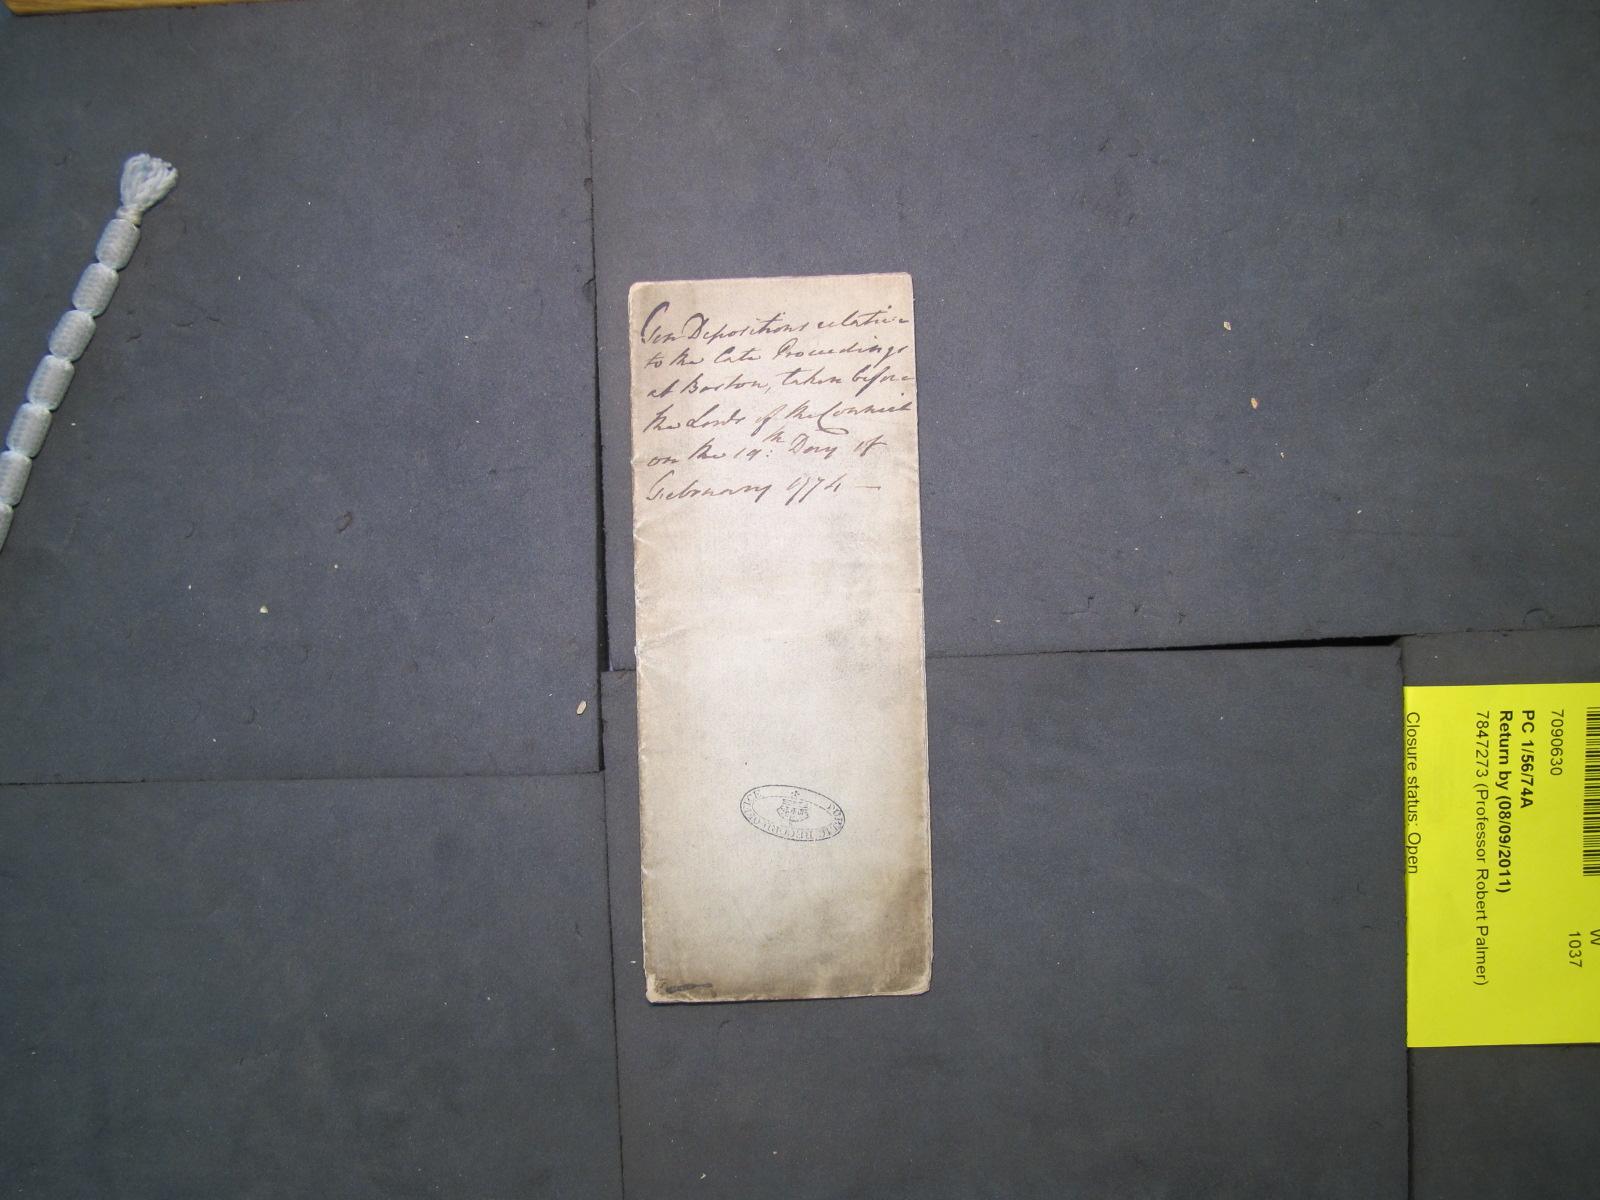 Ten Depositions relative
to the late Proceedings
at Boston, taken before
the Lords of the Council
on the 19th: Day of
February 1774 —
PUBLIC RECORD OFFICE
W
1037
7090630
PC 1/56/74A
Return by (08/09/2011)
7847273 (Professor Robert Palmer)
Closure status: Open